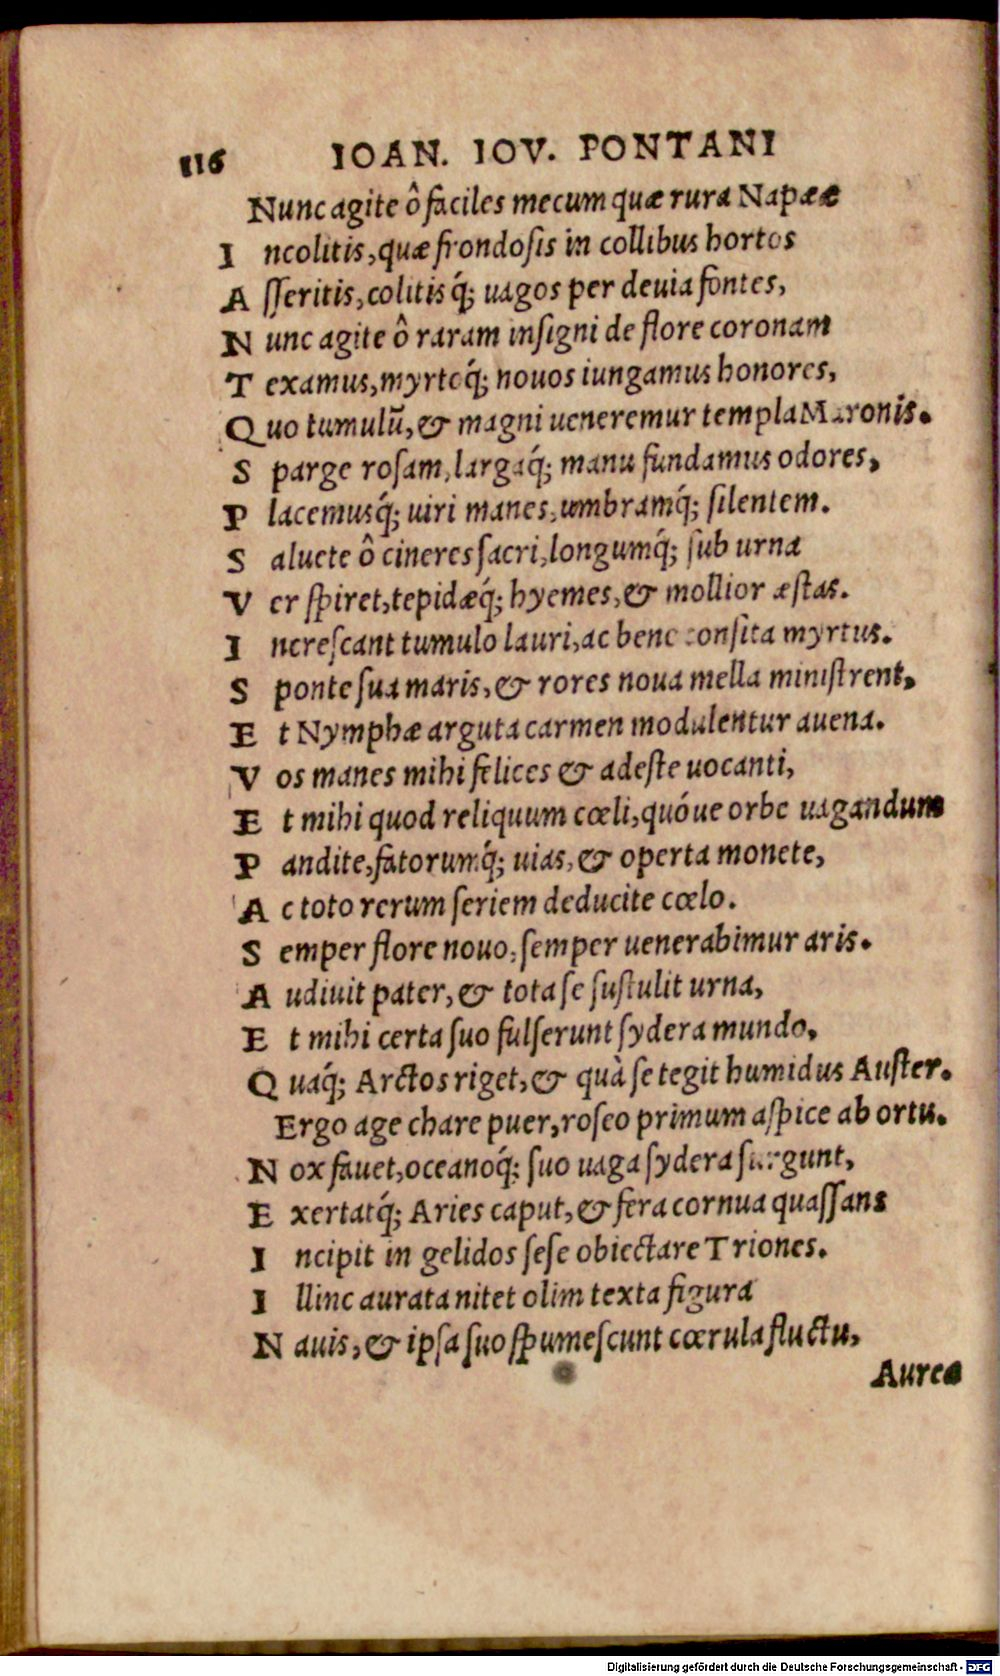 116 IOAN. IOV. PONTANI
Nunc agite ô faciles mecum quæ rura Napææ
I ncolitis, quæ frondoſis in collibus hortos
A ſſeritis, colitisq́; uagos per deuia fontes,
N unc agite ô raram inſigni de flore coronam
T examus, myrtoq́; nouos iungamus honores,
Q uo tumulũ, & magni ueneremur templa Maronis.
S parge roſam, largaq́; manu fundamus odores,
P lacemusq́; uiri manes, umbramq́; ſilentem.
S aluete ô cineres ſacri, longumq́; ſub urna
V er ſpiret, tepidæq́; hyemes, & mollior æſtas.
I ncreſcant tumulo lauri, ac bene conſita myrtus.
S ponte ſua maris, & rores noua mella miniſtrent,
E t Nymphæ arguta carmen modulentur auena.
V os manes mihi felices & adeſte uocanti,
E t mihi quod reliquum cœli, quóue orbe uagandum
P andite, fatorumq́; uias, & operta monete,
A c toto rerum ſeriem deducite cœlo.
S emper flore nouo, ſemper uenerabimur aris.
A udiuit pater, & tota ſe ſuſtulit urna,
E t mihi certa ſuo fulſerunt ſydera mundo,
Q uaq́; Arctos riget, & quà ſe tegit humidus Auſter.
Ergo age chare puer, roſeo primum aſpice ab ortu.
N ox fauet, oceanoq́; ſuo uaga ſydera ſurgunt,
E xertatq́; Aries caput, & fera cornua quaſſans
I ncipit in gelidos ſeſe obiectare Triones.
I llinc aurata nitet olim texta figura
N auis, & ipſa ſuo ſpumeſcunt cœrula fluctu,
Aurea
Digitalisierung gefördert durch die Deutsche Forschungsgemeinschaft - DFG